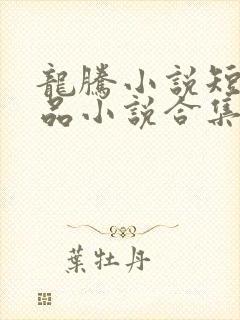 龍騰小說短
品小說合集
葉牡丹